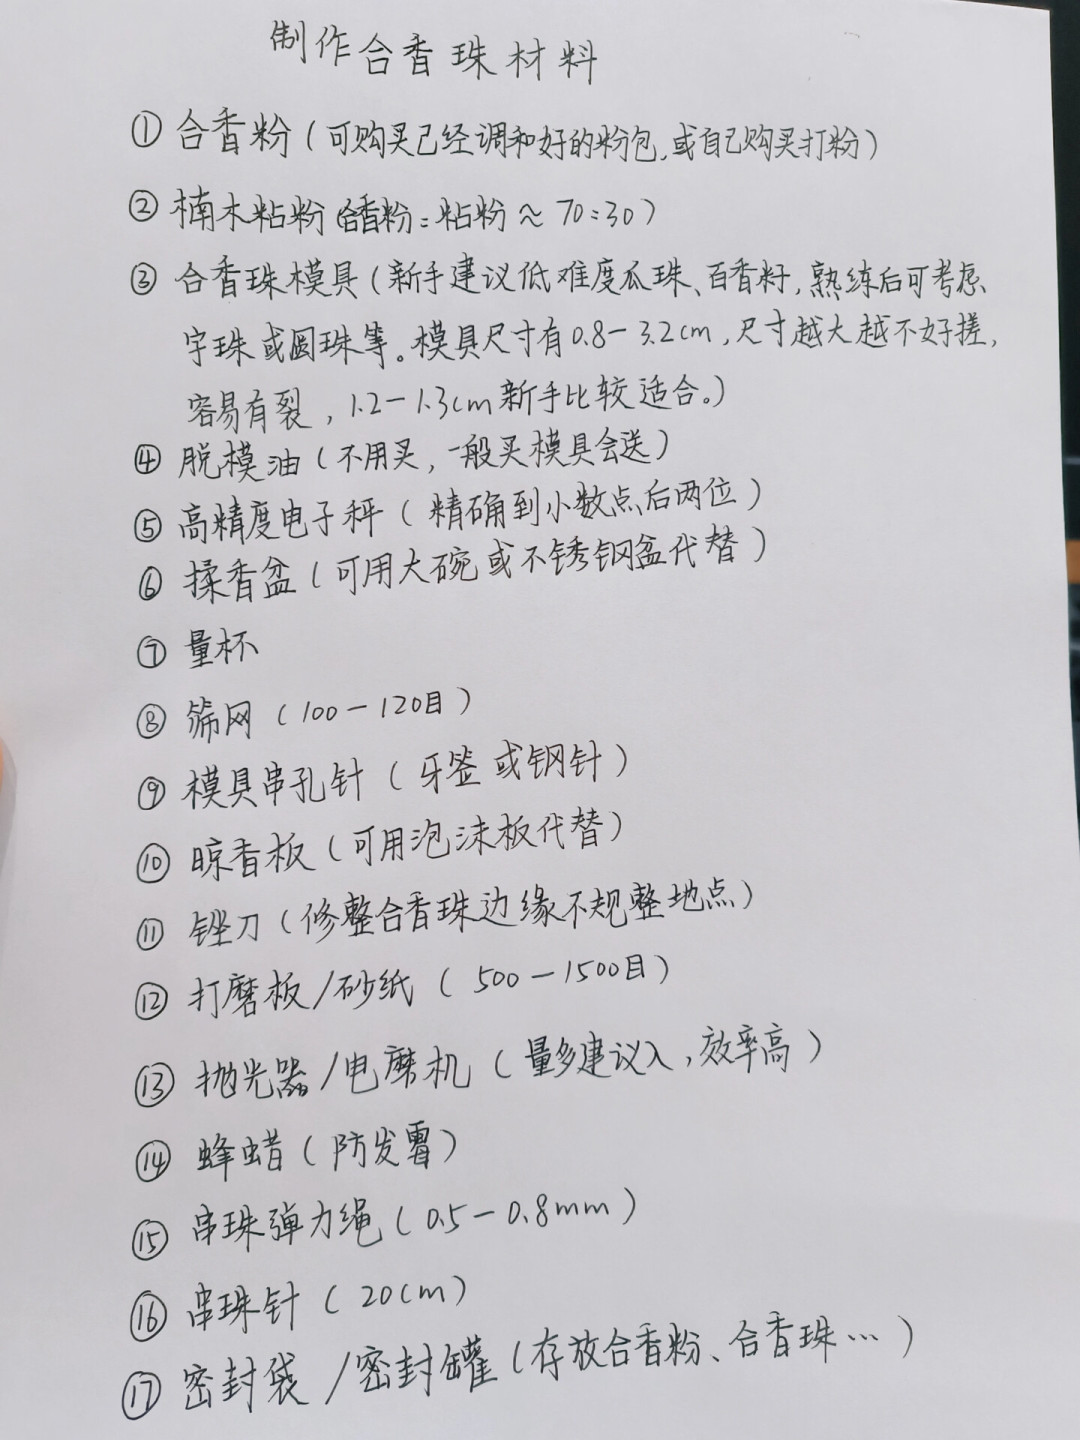 制作合香珠材料
① 合香粉（可购买已经调和好的粉包,或自己购买打粉）
② 楠木粘粉（合香粉:粘粉≈70:30）
③ 合香珠模具（新手建议低难度瓜珠、百香籽,熟练后可考虑
字珠或圆珠等。模具尺寸有0.8-3.2cm,尺寸越大越不好搓,
容易有裂,1.2-1.3cm新手比较适合。）
④ 脱模油（不用买,一般买模具会送）
⑤ 高精度电子秤（精确到小数点后两位）
⑥ 揉香盆（可用大碗或不锈钢盆代替）
⑦ 量杯
⑧ 筛网（100-120目）
⑨ 模具串孔针（牙签或钢针）
⑩ 晾香板（可用泡沫板代替）
⑪ 锉刀（修整合香珠边缘不规整地点）
⑫ 打磨板/砂纸（500-1500目）
⑬ 抛光器/电磨机（量多建议入,效率高）
⑭ 蜂蜡（防发霉）
⑮ 串珠弹力绳（0.5-0.8mm）
⑯ 串珠针（20cm）
⑰ 密封袋/密封罐（存放合香粉、合香珠…）